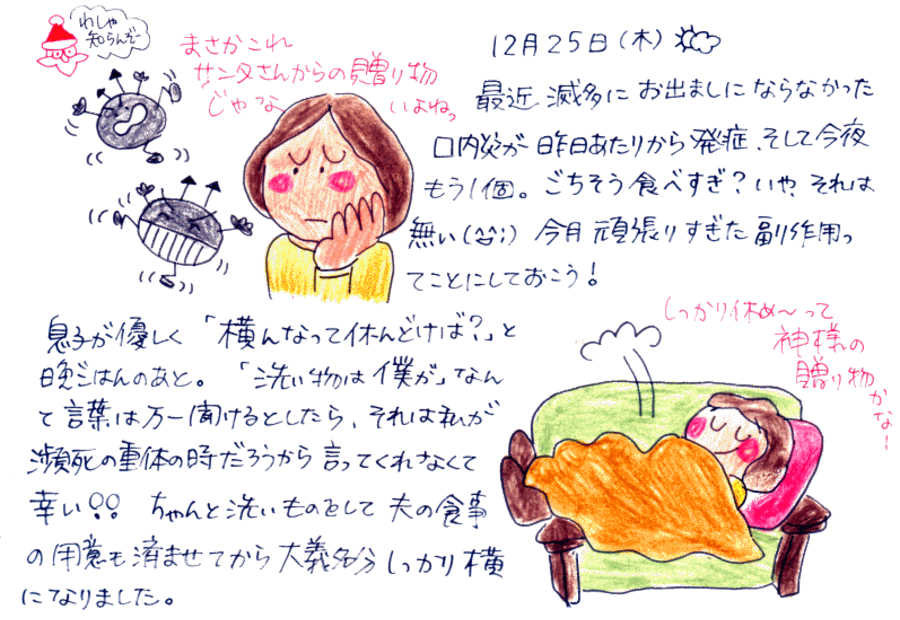 わしゃ
知らんぞー
まさかこれ
サンタさんからの贈り物
じゃないよねっ
12月25日(木)
最近 滅多に お出ましにならなかった
口内炎が 昨日あたりから 発症、そして今夜
もう1個。ごちそう食べすぎ?いや、それは
無い(^^;) 今月 頑張りすぎた 副作用っ
てことにしておこう!
息子が優しく「横んなって休んどけば?」と
晩ごはんのあと。「洗い物は僕が」なん
て言葉は万一聞けるとしたら、それは私が
瀕死の重体の時だろうから 言ってくれなくて
幸い!! ちゃんと洗いものをして 夫の食事
の用意も済ませてから 大義名分 しっかり 横
になりました。
しっかり休め〜って
神様の
贈り物
かなー